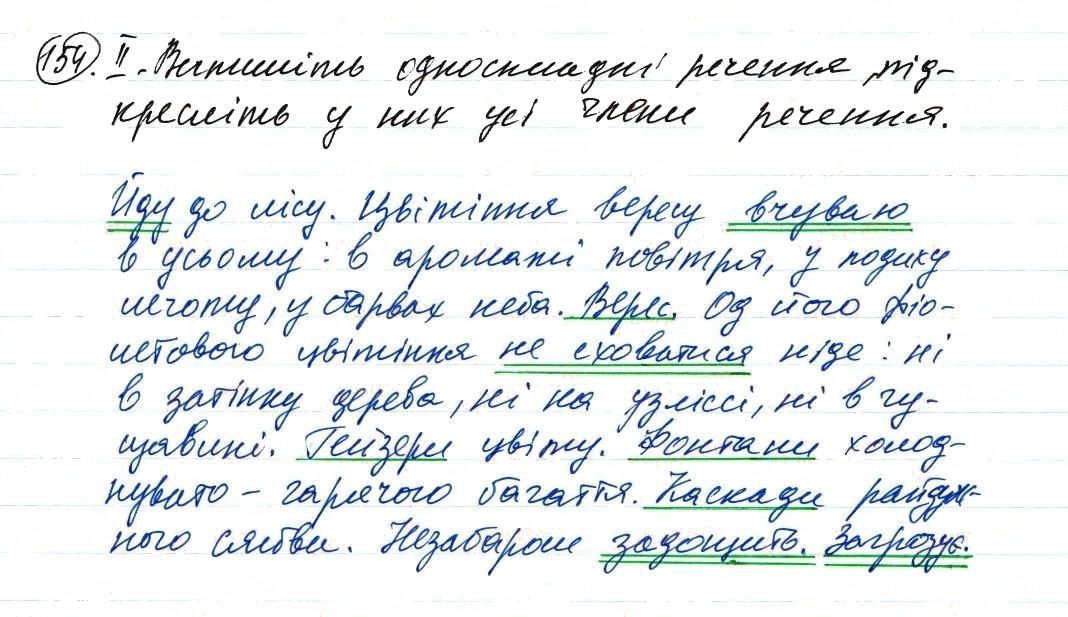 154. II. Випишіть односкладні речення, під-
кресліть у них усі члени речення.
Йду до лісу. Цвітіння вересу вчуваю
в усьому: в ароматі повітря, у подиху
льоту, у барвах неба. Верес. Од його фіо-
летового цвітіння не сховатися ніде: ні
в затінку дерева, ні на узліссі, ні в гу-
щавині. Гейзери цвіту. Фонтани холод-
нувато-гарячого багаття. Каскади райдуж-
ного сяйва. Незабаром задощить. Загрозує.